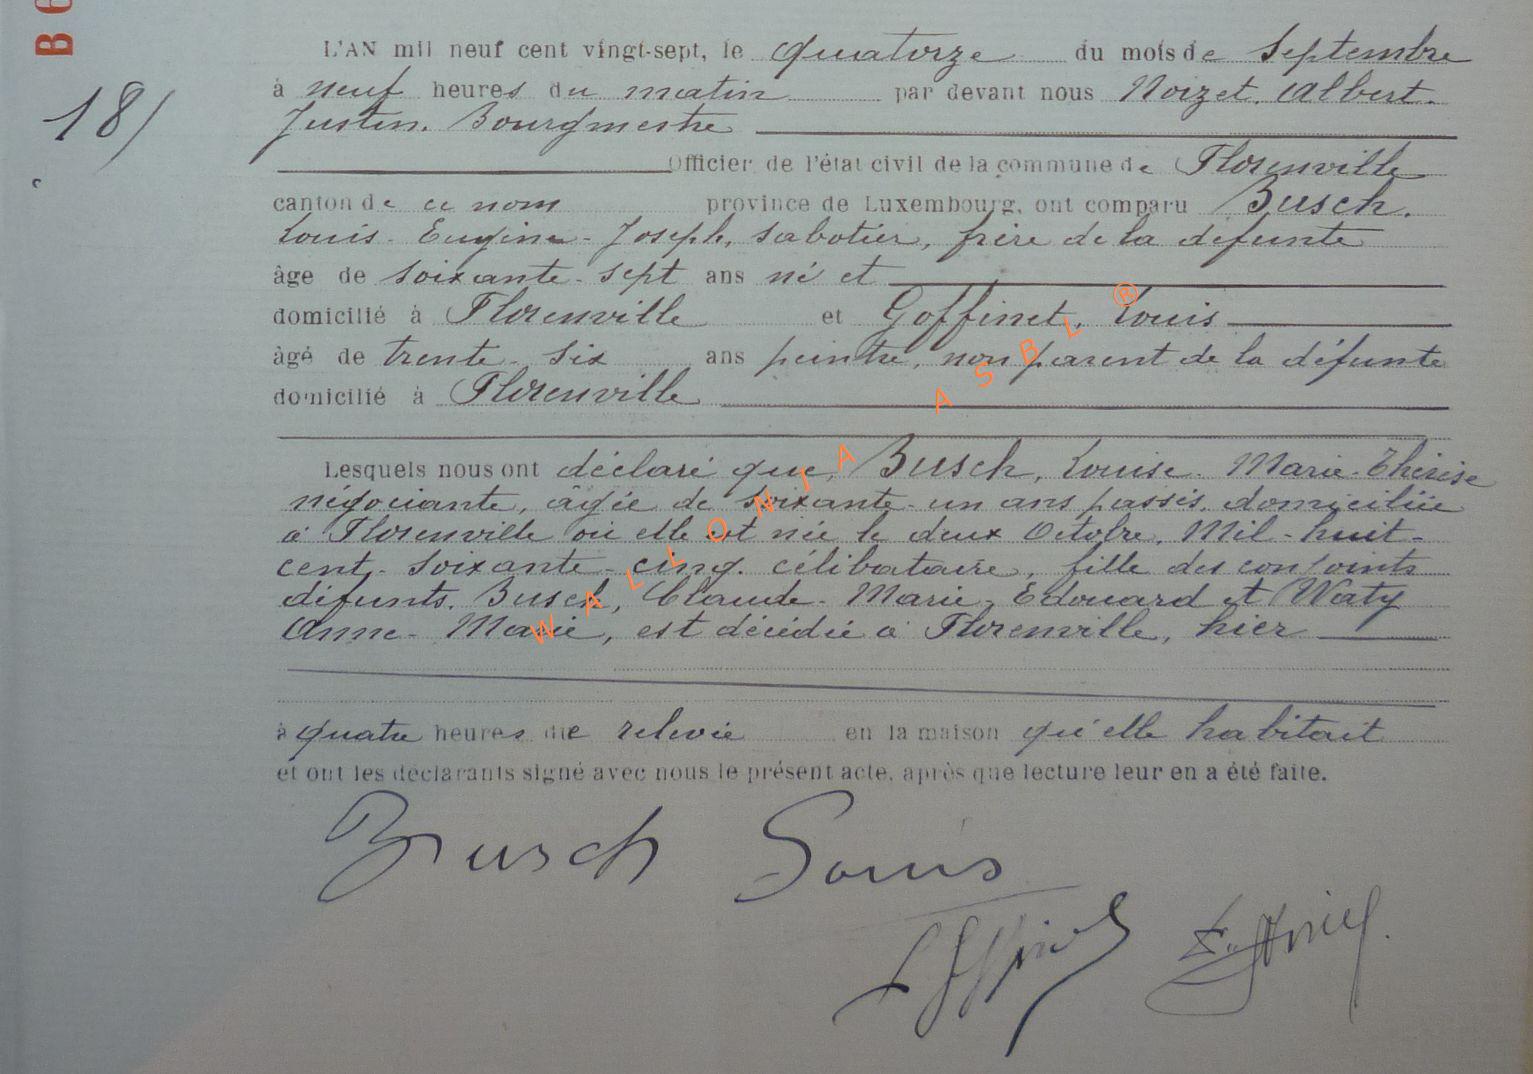 B 6
18/
L'AN mil neuf cent vingt-sept, le quatorze du mois de Septembre
à neuf heures du matin par devant nous Noizet, Albert.
Justin. Bourgmestre
Officier de l'état civil de la commune de Florenville
canton de ce nom province de Luxembourg, ont comparu Busch.
Louis-Eugène-Joseph, sabotier, frère de la defunte
âge de soixante-sept ans né et
domicilié à Florenville et Goffinet, Louis
âgé de trente-six ans peintre, non parent de la défunte
domicilié à Florenville
Lesquels nous ont déclaré que, Busch, Louise-Marie-Thérèse
négociante, âgée de soixante-un ans passés, domiciliée
à Florenville où elle est née le deux Octobre, Mil-huit-
cent-soixante-cinq. célibataire, fille des conjoints
défunts. Busch, Claude-Marie-Edouard et Waty
Anne-Marie, est décédée à Florenville, hier
à quatre heures de relevée en la maison qu'elle habitait
et ont les déclarants signé avec nous le présent acte, après que lecture leur en a été faite.
Busch Louis
WALLONIA ASBL ®